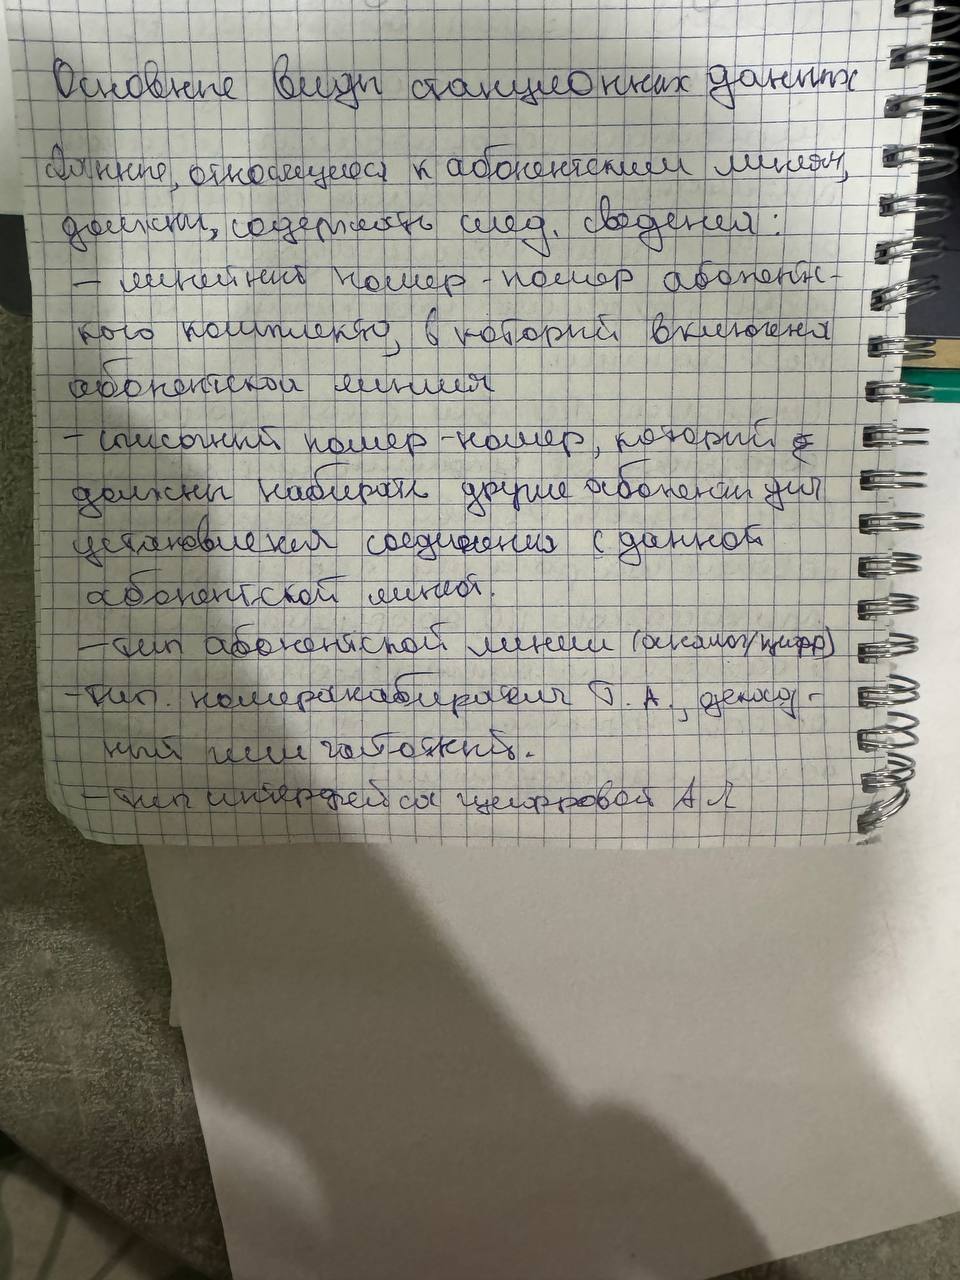 Основные виды станционных данных
Данные, относящиеся к абонентским линиям,
должны, содержать след. сведения:
- линейный номер - номер абонентс-
кого комплекта, в который включена
абонентская линия
- списочный номер - номер, который
должны набирать другие абоненты для
установления соединения с данной
абонентской линией.
- тип абонентской линии (аналог/цифр)
- тип номеранабирателя Т. А., декад-
ный или частотный.
- тип интерфейса цифровой АЛ